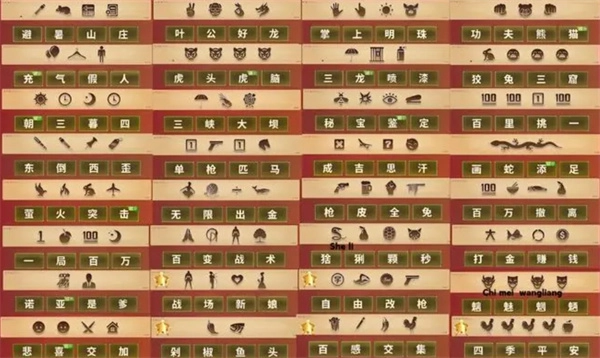 避暑山庄
叶公好龙
掌上明珠
功夫熊猫
充气假人
虎头虎脑
三龙喷漆
狡兔三窟
100 100 1 100
朝三暮四
三峡大坝
秘宝鉴定
百里挑一
东倒西歪
单枪匹马
成吉思汗
画蛇添足
100
萤火突击
无限出金
枪皮全免
百万撤离
1 100
She li
一局百万
百变战术
猞猁颗秒
打金赚钱
Chi mei wangliang
诺亚是爹
战场新娘
自由改枪
魑魅魍魉
悲喜交加
剁椒鱼头
百感交集
四季平安